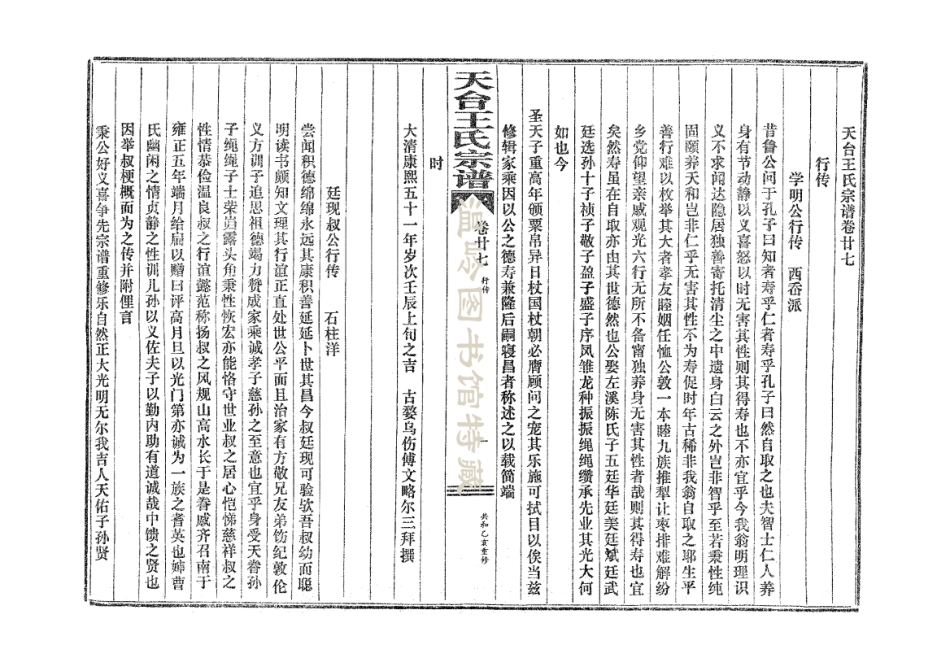 天台王氏宗谱卷廿七
行传
学明公行传　西岙派
昔鲁公问于孔子曰知者寿乎仁者寿乎孔子曰然自取之也夫智士仁人养
身有节动静以义喜怒以时无害其性则其得寿也不亦宜乎今我翁明理识
义不求闻达隐居独善寄托清尘之中遗身白云之外岂非智乎至若秉性纯
固颐养天和岂非仁乎无害其性不为寿促时年古稀非我翁自取之耶生平
善行难以枚举其大者孝友睦姻任恤公敦一本睦九族推犁让枣排难解纷
乡党仰望亲戚观光六行无所不备甯独养身无害其性者哉则其得寿也宜
矣然寿虽在自取亦由其世德然也公娶左溪陈氏子五廷华廷美廷斌廷武
廷选孙十子祯子敬子盈子盛子序凤雏龙种振振绳绳缵承先业其光大何
如也今
圣天子重高年颁粟帛异日杖国杖朝必膺顾问之宠其乐施可拭目以俟当兹
修辑家乘因以公之德寿兼隆后嗣寝昌者称述之以载简端
时
大清康熙五十一年岁次壬辰上旬之吉　古婺乌伤傅文略尔三拜撰
廷现叔公行传　石柱洋
尝闻积德绵绵永远其康积善延延卜世其昌今叔廷现可验欤吾叔幼而聪
明读书颇知文理其行谊正直处世公平而且治家有方敬兄友弟饬纪敦伦
义方训子追思祖德竭力赞成家乘诚孝子慈孙之至意也宜乎身受天眷孙
子绳绳子士荣岿露头角秉性恢宏亦能恪守世业叔之居心恺悌慈祥叔之
性情恭俭温良叔之行谊懿范称扬叔之风规山高水长于是眷戚齐召南于
雍正五年端月给扁以赠曰评高月旦以光门第亦诚为一族之耆英也婶曹
氏幽闲之情贞静之性训儿孙以义佐夫子以勤内助有道诚哉中馈之贤也
因举叔梗概而为之传并附俚言
秉公好义喜争先宗谱重修乐自然正大光明无尔我吉人天佑子孙贤
天台王氏宗谱
卷廿七
行传
一
共和乙亥重修
普总图书馆特藏